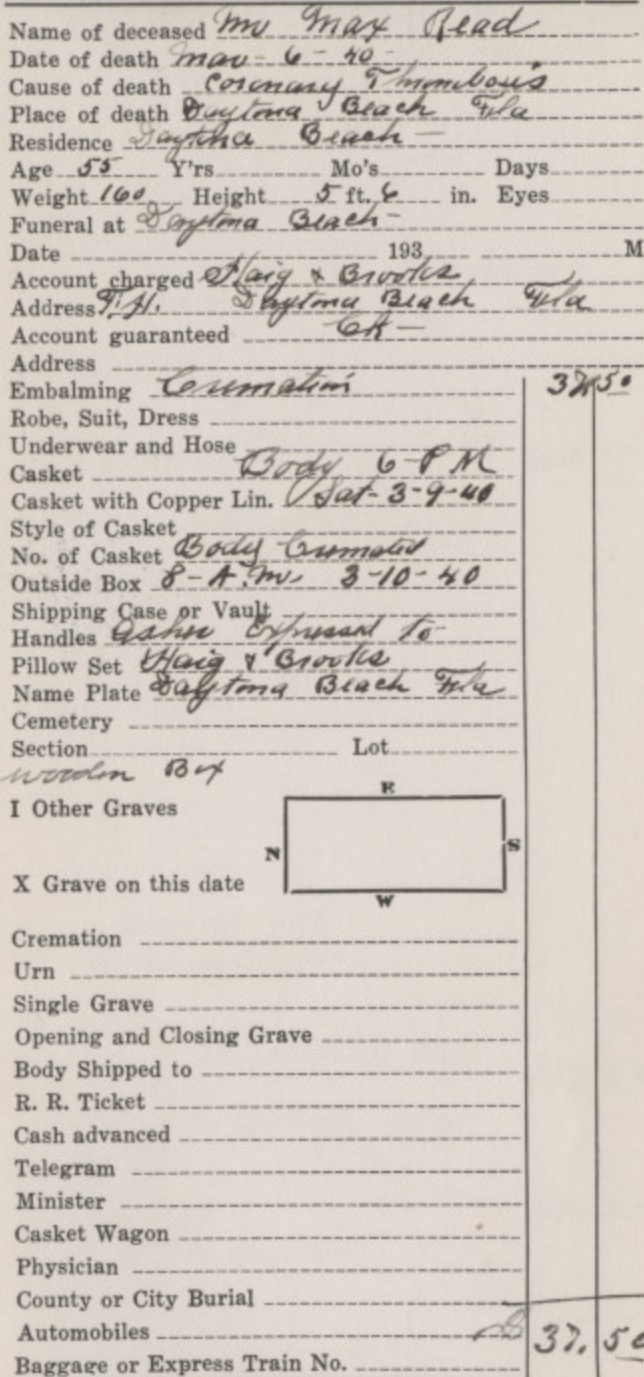 Name of deceased Mr Max Read
Date of death Mar - 6 - 40 -
Cause of death Coronary Thrombosis
Place of death Daytona Beach Fla
Residence Daytona Beach -
Age 55 Y'rs Mo's Days
Weight 160 Height 5 ft. 6 in. Eyes
Funeral at Daytona Beach -
Date 193 M
Account charged Haig & Brooks
Address F.H. Daytona Beach Fla
Account guaranteed Ck -
Address
Embalming Cremation 37 50
Robe, Suit, Dress
Underwear and Hose
Casket Body 6 - P M
Casket with Copper Lin. Sat - 3-9-40
Style of Casket
No. of Casket Body Cremated
Outside Box 8 - A.M. 3-10-40
Shipping Case or Vault
Handles Ashes Expressed to
Pillow Set Haig & Brooks
Name Plate Daytona Beach Fla
Cemetery
Section Lot
wooden Box
E
I Other Graves
N S
X Grave on this date
W
Cremation
Urn
Single Grave
Opening and Closing Grave
Body Shipped to
R. R. Ticket
Cash advanced
Telegram
Minister
Casket Wagon
Physician
County or City Burial
Automobiles 37. 50
Baggage or Express Train No.